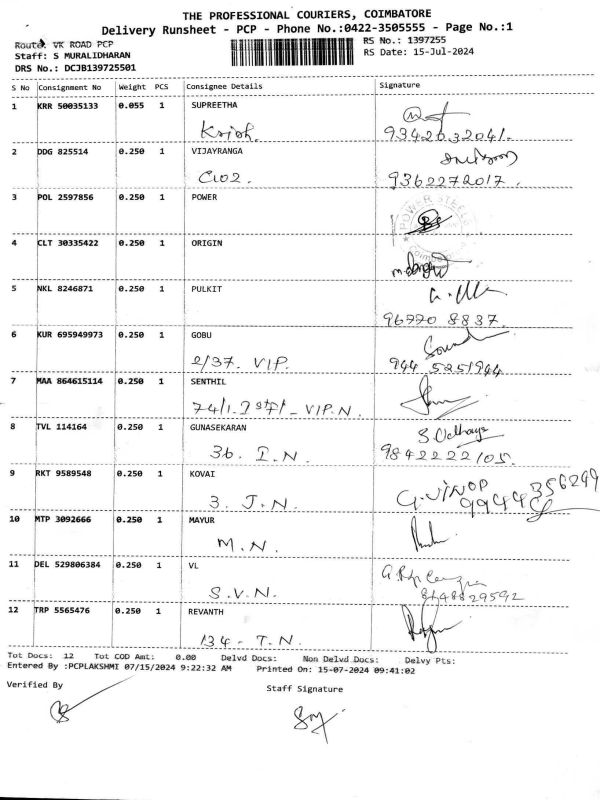 THE PROFESSIONAL COURIERS, COIMBATORE
Delivery Runsheet - PCP - Phone No.:0422-3505555 - Page No.:1
Route: VK ROAD PCP
RS No.: 1397255
Staff: S MURALIDHARAN
RS Date: 15-Jul-2024
DRS No.: DCJB139725501
S No Consignment No Weight PCS Consignee Details Signature
1 KRR 50035133 0.055 1 SUPREETHA
Krish. 9342032041.
2 DDG 825514 0.250 1 VIJAYRANGA
C102. 9362272017.
3 POL 2597856 0.250 1 POWER
POWER STEEL
4 CLT 30335422 0.250 1 ORIGIN
5 NKL 8246871 0.250 1 PULKIT
96770 8837.
6 KUR 695949973 0.250 1 GOBU
2/37. VIP. 944 5251944
7 MAA 864615114 0.250 1 SENTHIL
74/1. VIP.N.
8 TVL 114164 0.250 1 GUNASEKARAN
S. Udhaya
36. I.N. 9842222105.
9 RKT 9589548 0.250 1 KOVAI
3. J.N. G.VINOP 9944356299
10 MTP 3092666 0.250 1 MAYUR
M.N.
11 DEL 529806384 0.250 1 VL
S.V.N. 8148829592
12 TRP 5565476 0.250 1 REVANTH
134 - T.N.
Tot Docs: 12 Tot COD Amt: 0.00 Delvd Docs: Non Delvd Docs: Delvy Pts:
Entered By :PCPLAKSHMI 07/15/2024 9:22:32 AM Printed On: 15-07-2024 09:41:02
Verified By
Staff Signature